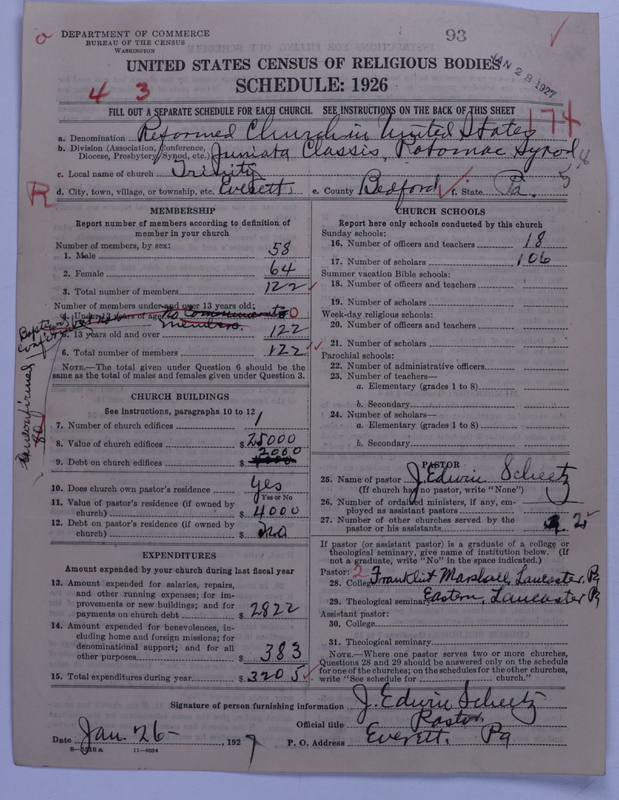 DEPARTMENT OF COMMERCE
BUREAU OF THE CENSUS
WASHINGTON
93
JAN 28 1927
UNITED STATES CENSUS OF RELIGIOUS BODIES
SCHEDULE: 1926
4 3
174
FILL OUT A SEPARATE SCHEDULE FOR EACH CHURCH. SEE INSTRUCTIONS ON THE BACK OF THIS SHEET
a. Denomination Reformed Church in United States
b. Division (Association, Conference, Diocese, Presbytery, Synod, etc.) Juniata Classis, Potomac Synod
c. Local name of church Trinity
R
d. City, town, village, or township, etc. Everett e. County Bedford f. State Pa.
MEMBERSHIP
Report number of members according to definition of
member in your church
Number of members, by sex:
1. Male 58
2. Female 64
3. Total number of members 122
Number of members under and over 13 years old:
4. Under 13 years of age No Communicant 0
members.
5. 13 years old and over 122
6. Total number of members 122
NOTE.—The total given under Question 6 should be the
same as the total of males and females given under Question 3.
Unconfirmed
CHURCH BUILDINGS
See instructions, paragraphs 10 to 12
7. Number of church edifices 1
8. Value of church edifices $25000
9. Debt on church edifices $ 2000
10. Does church own pastor's residence yes
Yes or No
11. Value of pastor's residence (if owned by
church) $4000
12. Debt on pastor's residence (if owned by
church) $ no
EXPENDITURES
Amount expended by your church during last fiscal year
13. Amount expended for salaries, repairs,
and other running expenses; for im-
provements or new buildings; and for
payments on church debt $ 2822
14. Amount expended for benevolences, in-
cluding home and foreign missions; for
denominational support; and for all
other purposes $ 383
15. Total expenditures during year $3205
CHURCH SCHOOLS
Report here only schools conducted by this church
Sunday schools:
16. Number of officers and teachers 18
17. Number of scholars 106
Summer vacation Bible schools:
18. Number of officers and teachers
19. Number of scholars
Week-day religious schools:
20. Number of officers and teachers
21. Number of scholars
Parochial schools:
22. Number of administrative officers
23. Number of teachers—
a. Elementary (grades 1 to 8)
b. Secondary
24. Number of scholars—
a. Elementary (grades 1 to 8)
b. Secondary
PASTOR
25. Name of pastor J. Edwin Scheetz
(If church has no pastor, write "None")
26. Number of ordained ministers, if any, em-
ployed as assistant pastors
27. Number of other churches served by the
pastor or his assistants 2
If pastor (or assistant pastor) is a graduate of a college or
theological seminary, give name of institution below. (If
not a graduate, write "No" in the space indicated.)
Pastor: 2
28. College Franklin & Marshall, Lancaster, Pa
29. Theological seminary Eastern, Lancaster Pa
Assistant pastor:
30. College
31. Theological seminary
NOTE.—Where one pastor serves two or more churches,
Questions 28 and 29 should be answered only on the schedule
for one of the churches; on the schedules for the other churches,
write "See schedule for church."
Signature of person furnishing information J. Edwin Scheetz
Official title Pastor,
Date Jan. 26 - 1927 P. O. Address Everett, Pa
11-9034